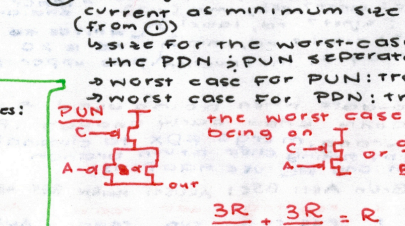 current as minimum size
(from ①)
↳ size for the worst-cas
the PDN & PUN seperat
→ worst case for PUN: tr
→ worst case for PDN: tr
es:
PUN
the worst case
being on
C
C
or
A
B
A
out
3R + 3R = R